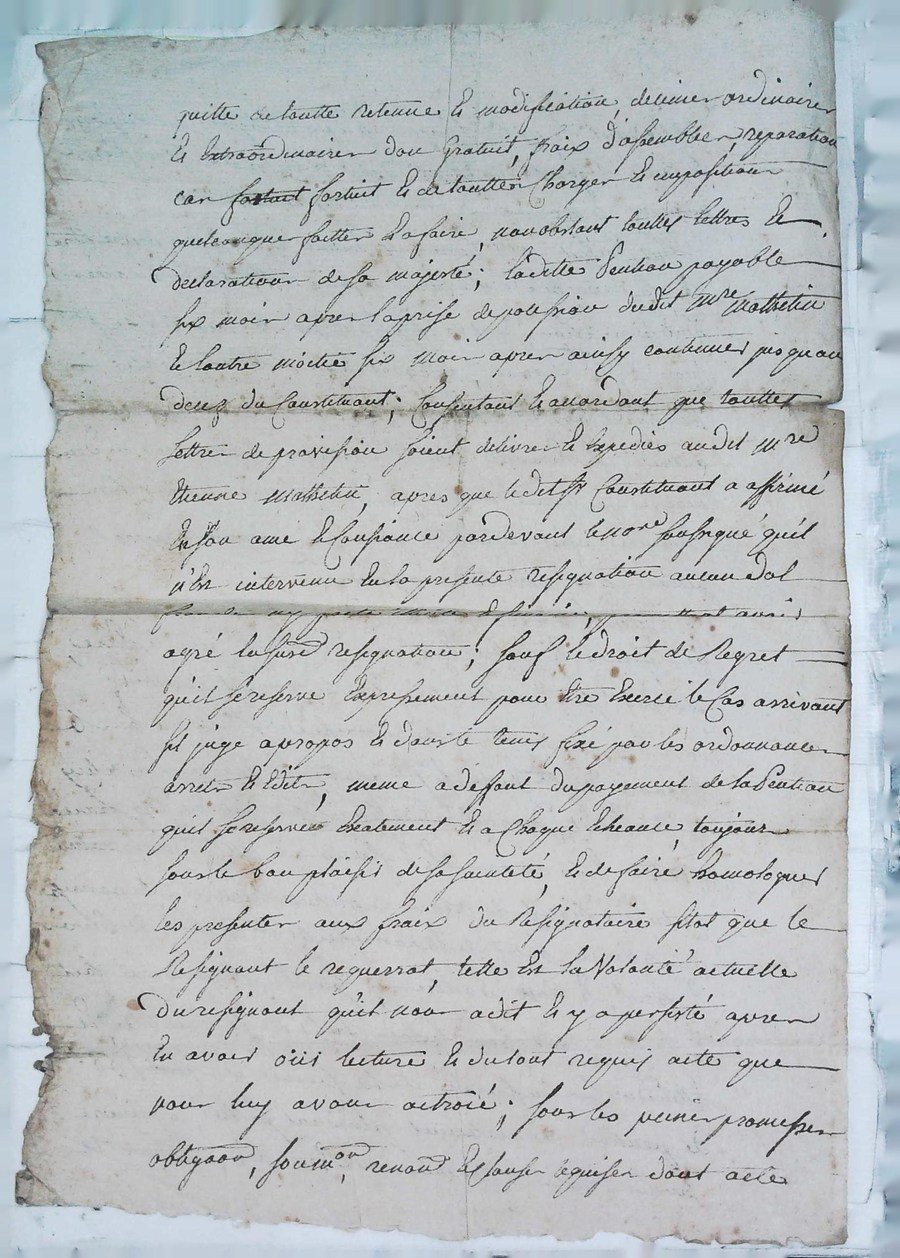 quitte de toutte retenue et modification, decimes ordinaires
et extraordinaires don gratuit, fraix d'assemblées, reparations
cas fortuit fortuit et de touttes Charges et impositions
quelconques faittes et a faire, nonobstant touttes lettres et
declarations de sa majesté; laditte Pention payable
six mois apres la prise de possession dudit mre mathelin
et lautre moitié six mois apres ainsy continuer jusqu'au
decez du Constituant; Consentant et accordant que touttes
lettres de provision soient delivrés et expediés audit mre
Etienne mathelin, apres que ledit sr Constituant a affirmé
En son ame et Consiance pardevant le nore soussigné qu'il
n'Est intervenu En la presente resignation aucun dol
fraude ny pacte
agré la susd resignation; sauf le droit de Regret
qu'il se reserve Expressement pour Etre Exercé le Cas arrivant
sil juge apropos et dans le tems fixé par les ordonnances
arrets et Edits, meme a deffaut du payement de la Pention
qu'il se reserve Exatement et a Chaque Echeance, toujours
sous le bon plaisir de sa sainteté, et de faire homologuer
les presentes aux fraix du Resignataire sitot que le
Resignant le requerrat, telle Est la Volonté actuelle
du resignant qu'il nous a dit et y a persisté apres
En avoir oüis lecture et du tout requis acte que
nous luy avons octroié; sous les peines promesses
obligaon, soumon, renond Et clauses requises dont acte